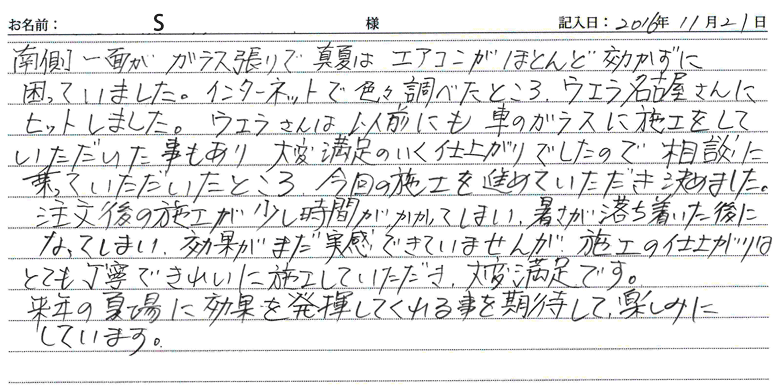 お名前: S 様 記入日: 2016年 11月 21日
南側一面が ガラス張りで 真夏は エアコンが ほとんど 効かずに
困っていました。インターネットで 色々調べたところ、ウエラ名古屋さんに
ヒットしました。 ウエラさんは 以前にも 車のガラスに 施工をして
いただいた事もあり 大変満足のいく仕上がりでしたので 相談に
乗っていただいたところ、今回の施工を進めていただき決めました。
注文後の施工が少し時間がかかってしまい、暑さが落ち着いた後に
なってしまい、効果がまだ実感できていませんが、施工の仕上がりは
とても丁寧できれいに施工していただき、大変満足です。
来年の夏場に効果を発揮してくれる事を期待して、楽しみに
しています。